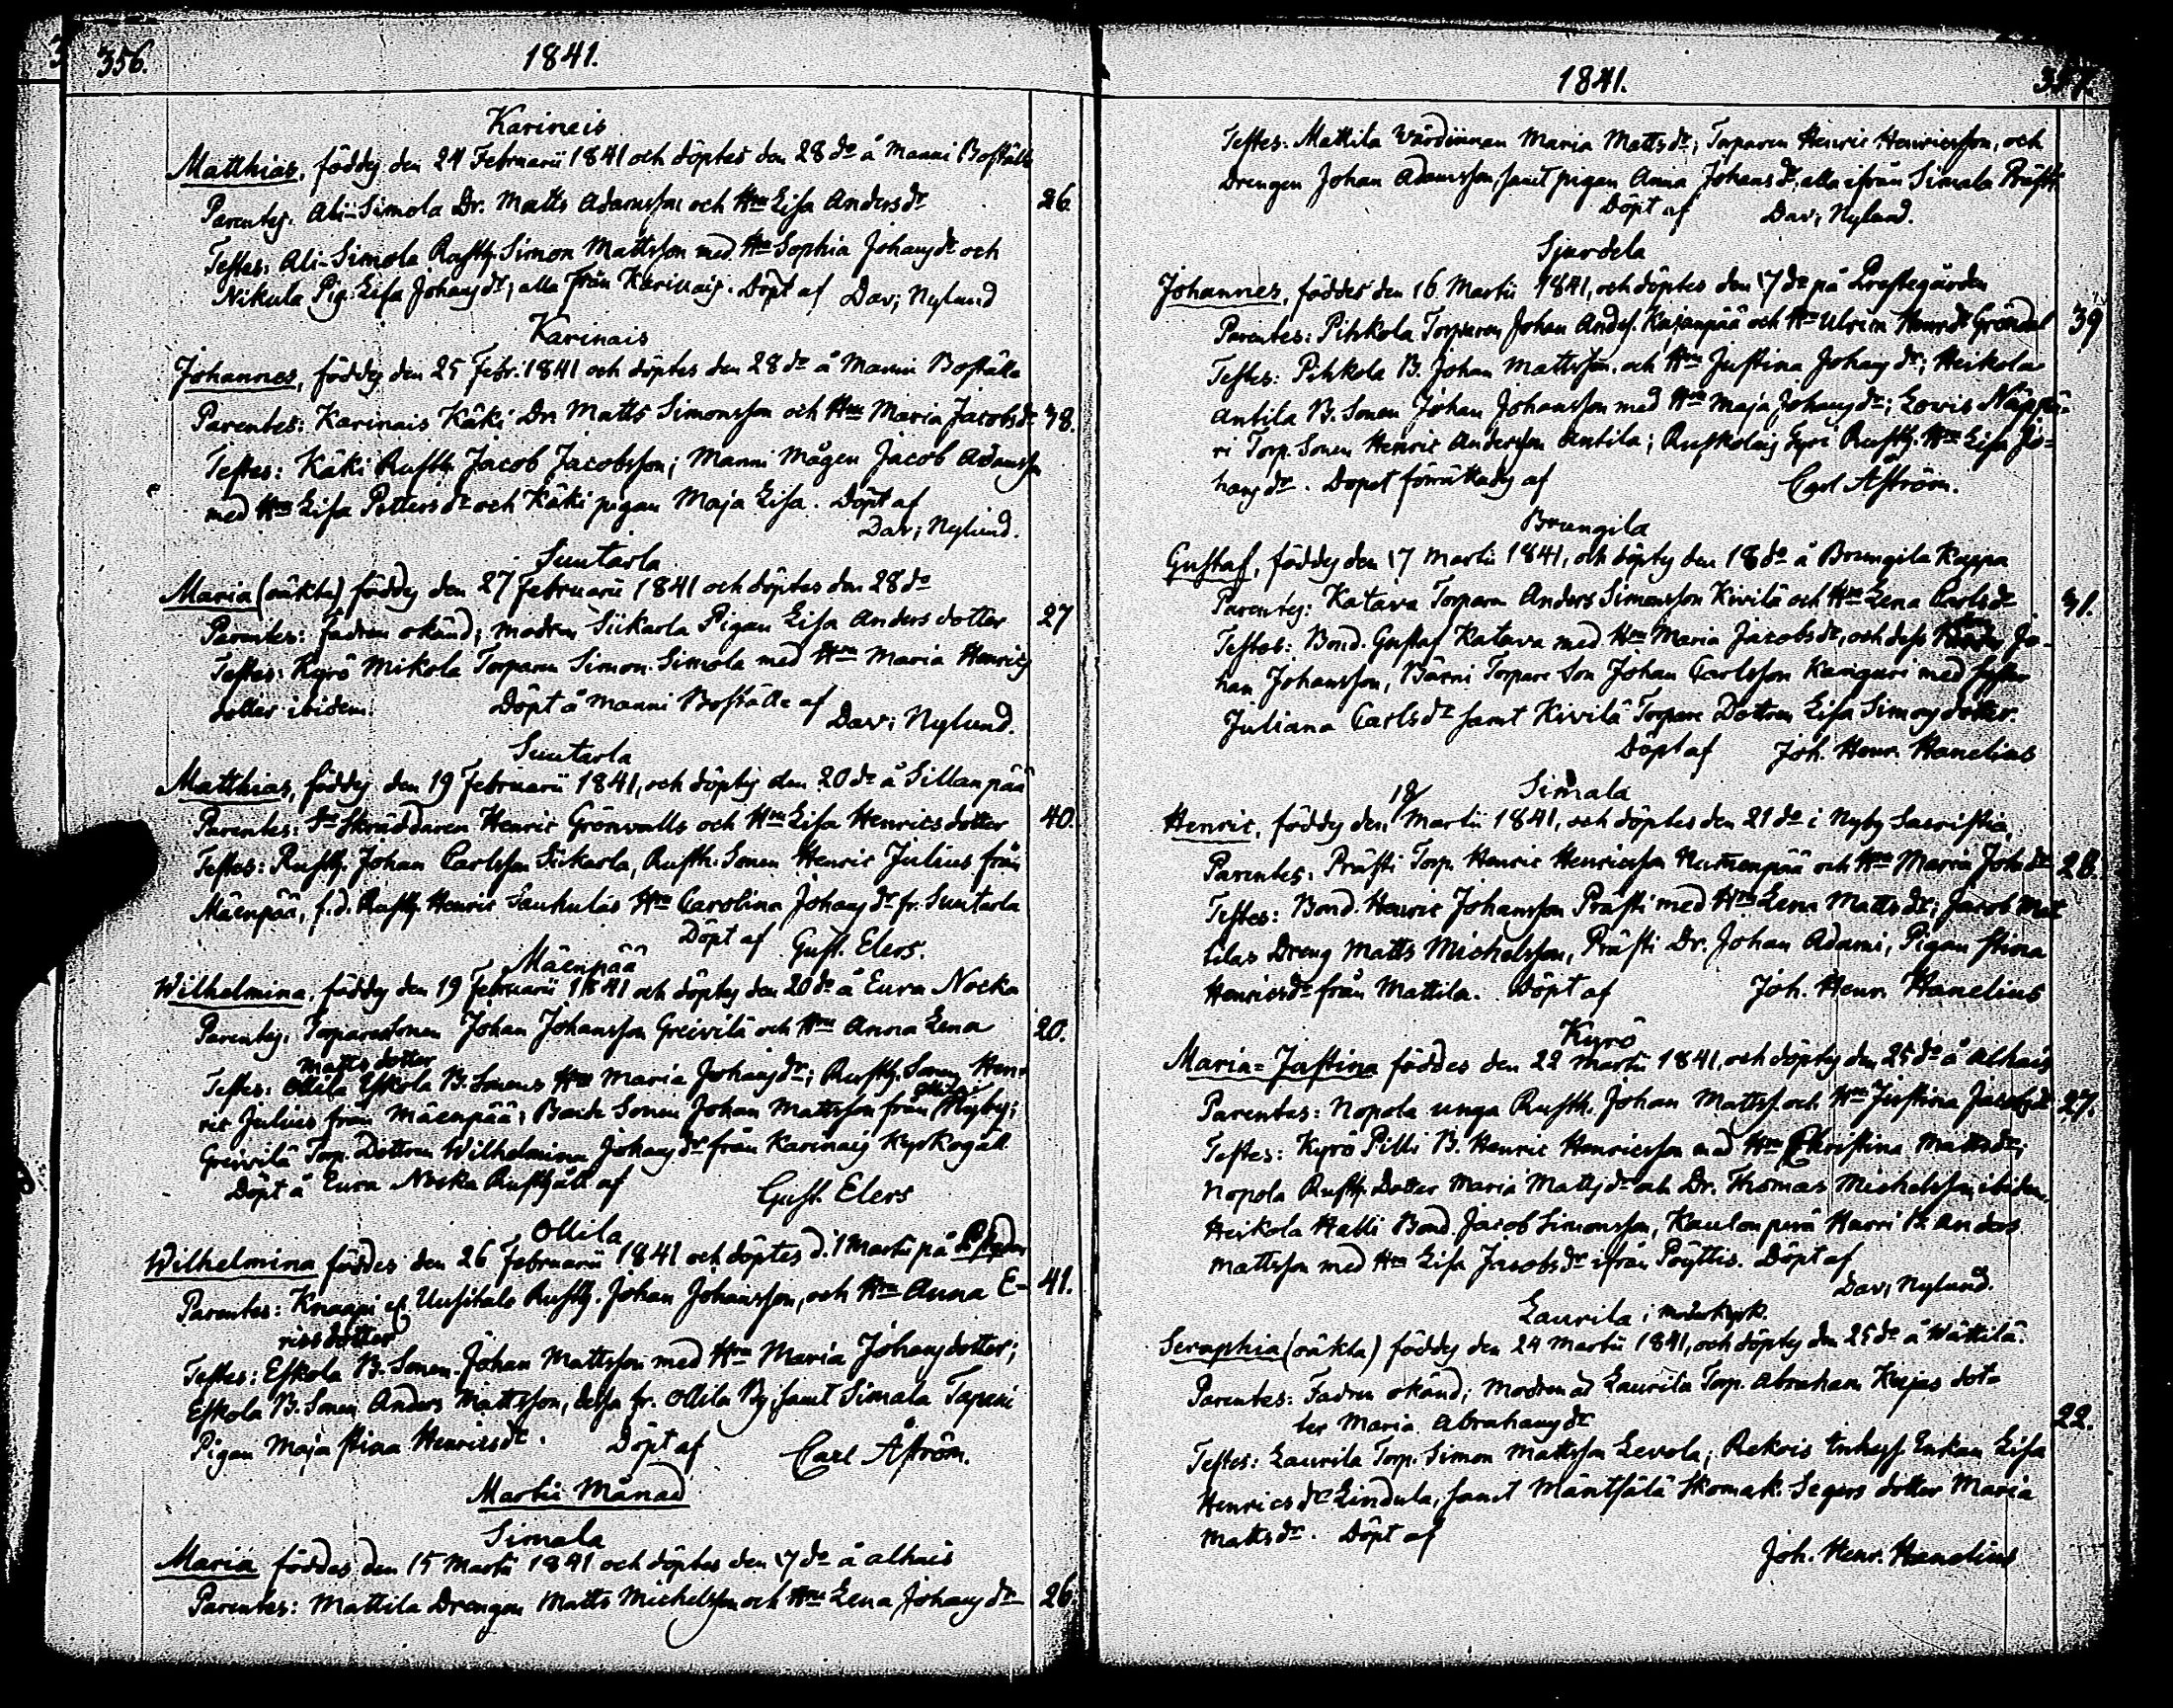 356. 1841.
Karineis
Matthias, föddes den 24 Februarii 1841 och döptes den 28 do å Manni Boställe
Parentes. Ali-Simola Dr. Matts Adamsson och Hru Lisa Andersdr 26
Testes: Ali-Simola Rusth. Simon Mattsson med Hu Sophia Johansdr och
Nikula Pig. Lisa Johansdr, alla från Karinais. Döpt af Dav; Nylund
Karinais
Johannes, föddes den 25 Febr. 1841 och döptes den 28 do å Manni Boställe
Parentes: Karinais Käki Dr. Matts Simonsson och Hru Maria Jacobsdr 38.
Testes: Käki Rusth. Jacob Jacobsson; Manni Mågen Jacob Adamsson
med Hru Lisa Pettersdr och Käki pigan Maja Lisa. Döpt af
Dav; Nylund.
Suutarla
Maria (oäkta) föddes den 27 Februarii 1841 och döptes den 28 do
Parentes: fadren okänd; modren Siikarla Pigan Lisa Anders dotter 27
Testes: Kyrö Mikola Torparen Simon Simola med Hru Maria Henrics
dotter ibidem. Döpt å Manni Boställe af
Dav; Nylund.
Suutarla
Matthias, föddes den 19 Februarii 1841, och döptes den 20 do å Sillanpää
Parentes: Skräddaren Henric Grönvalls och Hru Lisa Henricsdotter 40.
Testes: Rusth. Johan Carlsson Siikarla, Rusth. Sonen Henric Julius från
Mäenpää, f.d. Rusth. Henric Hru Carolina Johansdr fr. Suutarla
Döpt af Gust. Elers.
Mäenpää
Wilhelmina, föddes den 19 Februarii 1841 och döptes den 20 do å Eura Nocka
Parentes. Torparesonen Johan Johansson Greivilä och Hru Anna Lena 20.
Matts dotter
Testes: Ollila Eskola B. Sonens Hru Maria Johansdr; Rusth. Sonen Hen-
ric Julius från Mäenpää; Bonde Sonen Johan Mattsson från Nyby;
Greivilä Torp. Dottren Wilhelmina Johansdr från Karinais Kyrkogäll
Döpt å Eura Nocka Rusthåll af Gust. Elers
Ollila
Wilhelmina föddes den 26 Februarii 1841 och döptes d. 1 Martii på
Parentes: Knaapi Uusitalo Rusth. Johan Johansson, och Hru Anna E- 41.
ricsdotter
Testes: Eskola B. Sonen Johan Mattsson med Hru Maria Johansdotter;
Eskola B. Sonen Anders Mattsson, dessa fr. Ollila By, samt Simala Tapani
Pigan Maja Stina Henricsdr. Döpt af Carl Åström.
Martii Månad
Simala
Maria föddes den 15 Martii 1841 och döptes den 17 do å Alhais
Parentes: Mattila Drengen Matts Michelsson och Hru Lena Johansdr 26.
1841. 357.
Testes: Mattila Värdinnan Maria Mattsdr; Torparen Henric Henricsson, och
Drengen Johan Adamsson, samt pigan Anna Johansdr, alla ifrån Simala Prästi
Döpt af Dav; Nylund.
Sjurdela
Johannes, föddes den 16 Martii 1841, och döptes den 17 do på Prestegården
Parentes: Pihkola Torparen Johan Anders. Kajanpää och Hu Ulrica Henrdr Gröndal 39
Testes: Pihkola B. Johan Mattsson och Hru Justina Johansdr; Heikola
Antila B. Sonen Johan Johansson med Hru Maja Johansdr; Lovis Näppä-
ri Torp. Sonen Henric Andersson Antila; Ruskolas Rusth. Hru Lisa Jo-
hansdr. Dopet förrättades af Carl Åström.
Brungila
Gustaf, föddes den 17 Martii 1841, och döptes den 18 do å Brungila Kappa
Parentes: Katava Torparen Anders Simonsson Kivilä och Hru Lena Carlsdr 31.
Testes: Bond. Gustaf Katava med Hru Maria Jacobsdr, och dess Jo-
han Johansson, Bärni Torpare Son Johan Carlsson Kanguri med syster
Juliana Carlsdr samt Kivilä Torpare Dottren Lisa Simonsdotter.
Döpt af Joh. Henr. Hanelius
Simala
Henric, föddes den 18 Martii 1841, och döptes den 21 do i Nyby Sacristia,
Parentes: Prästi Torp. Henric Henricsson Nummenpää och Hru Maria Johsdr 28.
Testes: Bond. Henric Johansson Prästi med Hru Lena Mattsdr; Jacob Mat
tilas Dreng Matts Michelsson, Prästi Dr. Johan Adami, Pigan Stina
Henricsdr från Mattila. Döpt af Joh. Henr. Hanelius
Kyrö
Maria-Justina föddes den 22 Martii 1841, och döptes den 25 do å Alhais
Parentes: Nopola unga Rusth. Johan Mattss. och Hru Justina Jacobsdr 27.
Testes: Kyrö Pilli B. Henric Henricsson med Hru Christina Mattsdr;
Nopola Rusth. Dotter Maria Mattsdr och Dr. Thomas Michelsson ibidem,
Heikola Halli Bond. Jacob Simonsson, Kaulanperä Harri B. Anders
Mattsson med Hru Lisa Jacobsdr ifrån Pöyttis. Döpt af
Dav; Nylund.
Laurila i moderkyrk.
Seraphia (oäkta) föddes den 24 Martii 1841, och döptes den 25 do å Wättilä.
Parentes: Fadren okänd; modren är Laurila Torp. Abraham Kujas dot-
ter Maria Abrahamsdr 22.
Testes: Laurila Torp. Simon Mattsson Levola; Rekois Inhyss Enkan Lisa
Henricsdr Lindula, samt Mäntsälä Skomak. Segers dotter Maria
Mattsdr. Döpt af
Joh. Henr. Hanelius